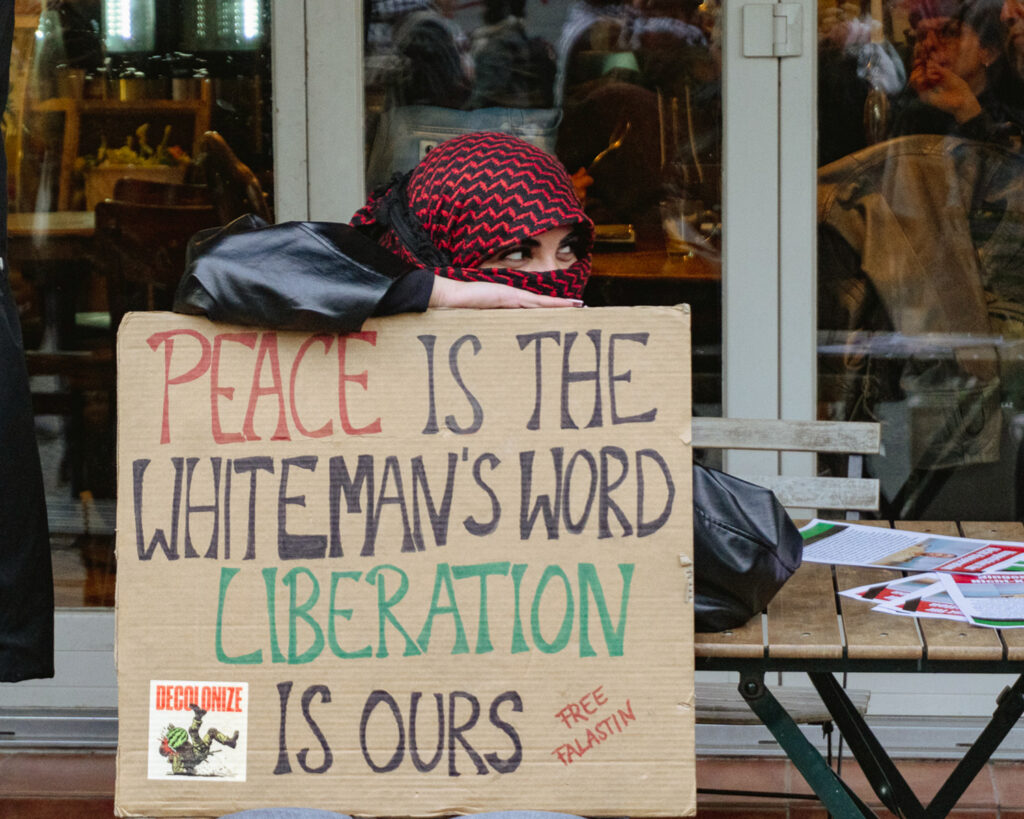 PEACE IS THE
WHITEMAN'S WORD
LIBERATION
IS OURS
FREE
FALASTIN
DECOLONIZE